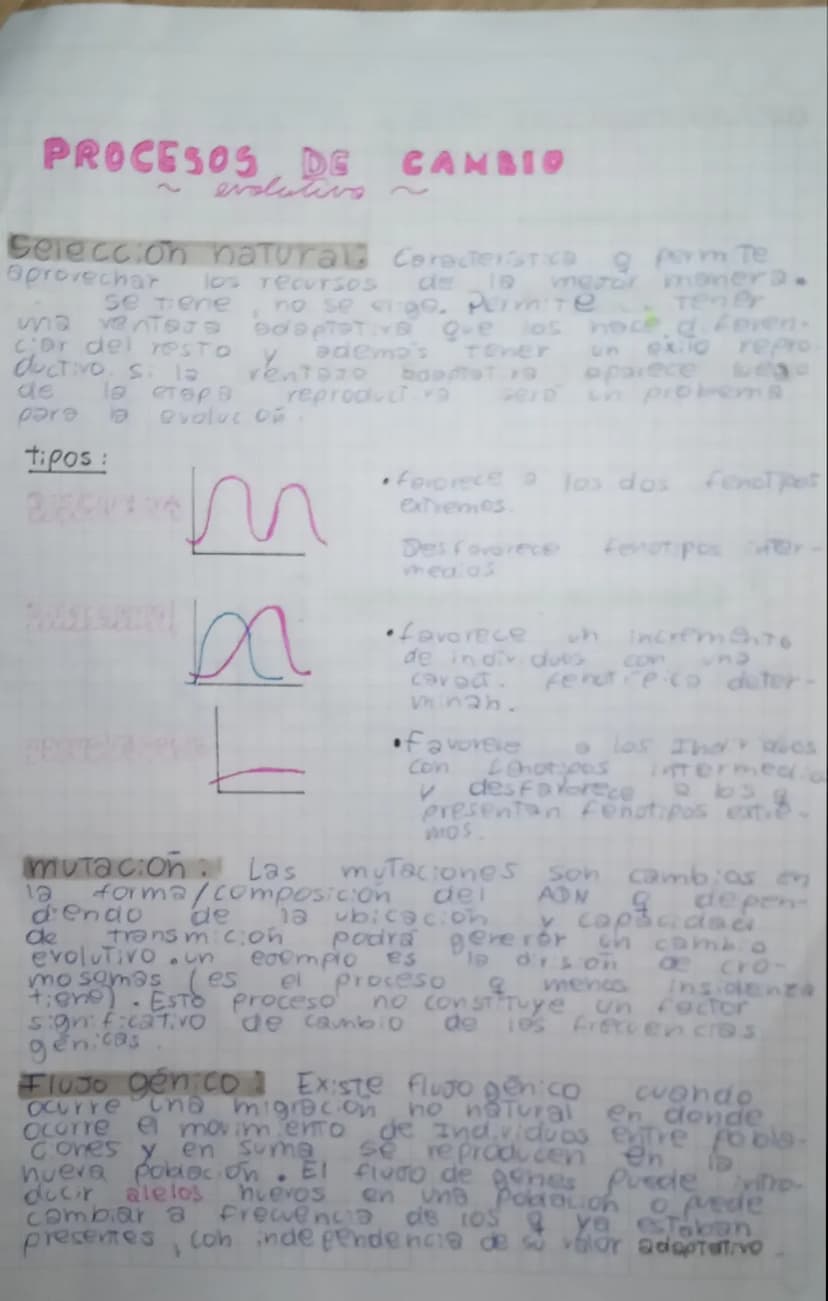 PROCESOS DE CAMBIO
~ evolutivo ~
Selección natural: Característica q permite
aprovechar los recursos de la mejor manera.
se tiene, no se elige. Permite tener
una ventaja adaptativa que los hace diferen-
ciar del resto y además tener un éxito repro-
ductivo. Si la ventaja adaptativa aparece luego
de la etapa reproductiva será un problema
para la evolución.
tipos:
• favorece a los dos fenotipos
extremos.
Desfavorece fenotipos inter-
medios
• favorece un incremento
de individuos con una
caract. fenotípica deter-
minan.
• Favorece a los Individuos
con fenotipos intermedio
y desfavorece a los q
presentan fenotipos extre-
mos.
mutación: Las mutaciones son cambios en
la forma/composición del ADN q depen-
diendo de la ubicación y capacidad
de transmición podrá generar un cambio
evolutivo. un ejemplo es la de cro-
mosomas (es el proceso q menos insidenza
tiene). Esto proceso no constituye un factor
significativo de cambio de las frecuencias
génicas.
Flujo génico: Existe flujo génico cuando
ocurre una migración no natural en donde
ocurre el movimiento de Individuos entre pobla-
ciones y en suma se reproducen en la
nueva población. El flujo de genes puede intro-
ducir alelos nuevos en una población o puede
cambiar a frecuencia de los q ya estaban
presentes, con independencia de su valor adaptativo.